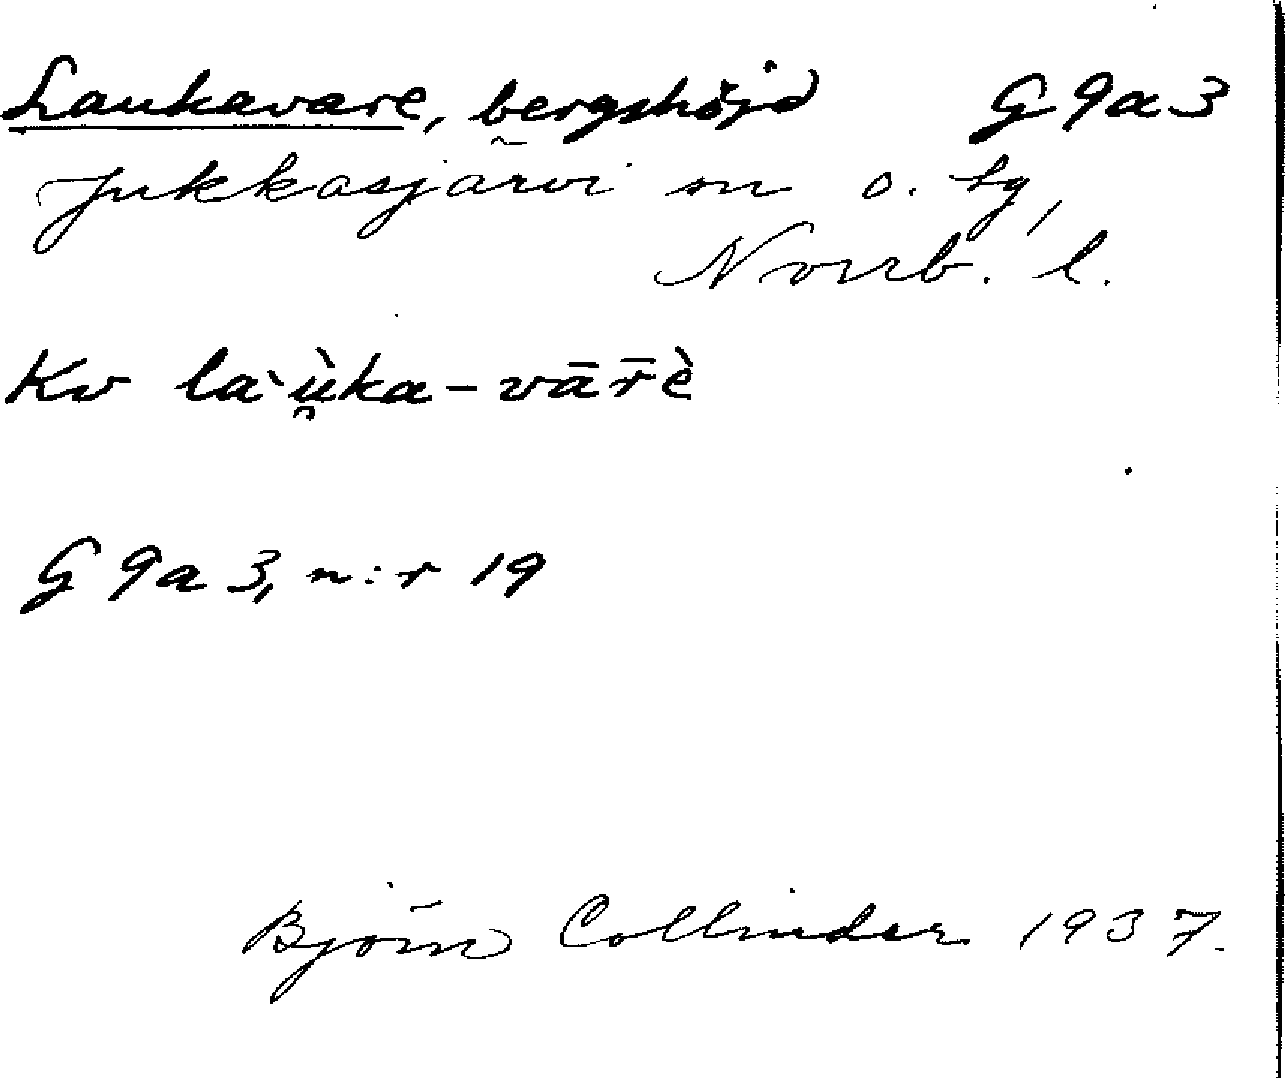 Laukavare, bergshöjd G9a3
Jukkasjärvi sn o. tg,
Norrb. l.
Kv la`ù̯ka-vār̄è
G9a3, n:r 19
Björn Collinder 1937.